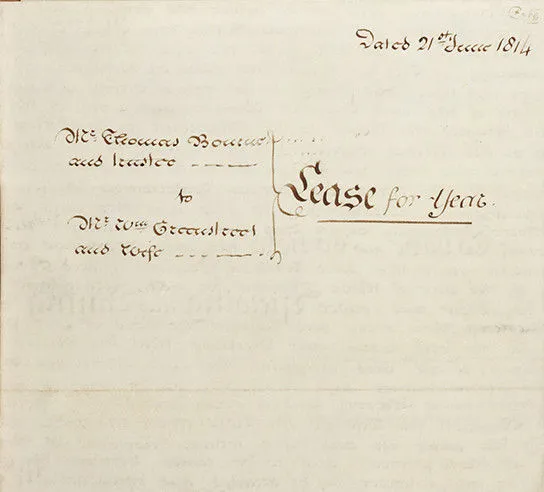 Dated 21st June 1814
Mr. Thomas Bourne
and trustee
to
Mr. Wm Greenstreet
and Wife
Lease for Year.